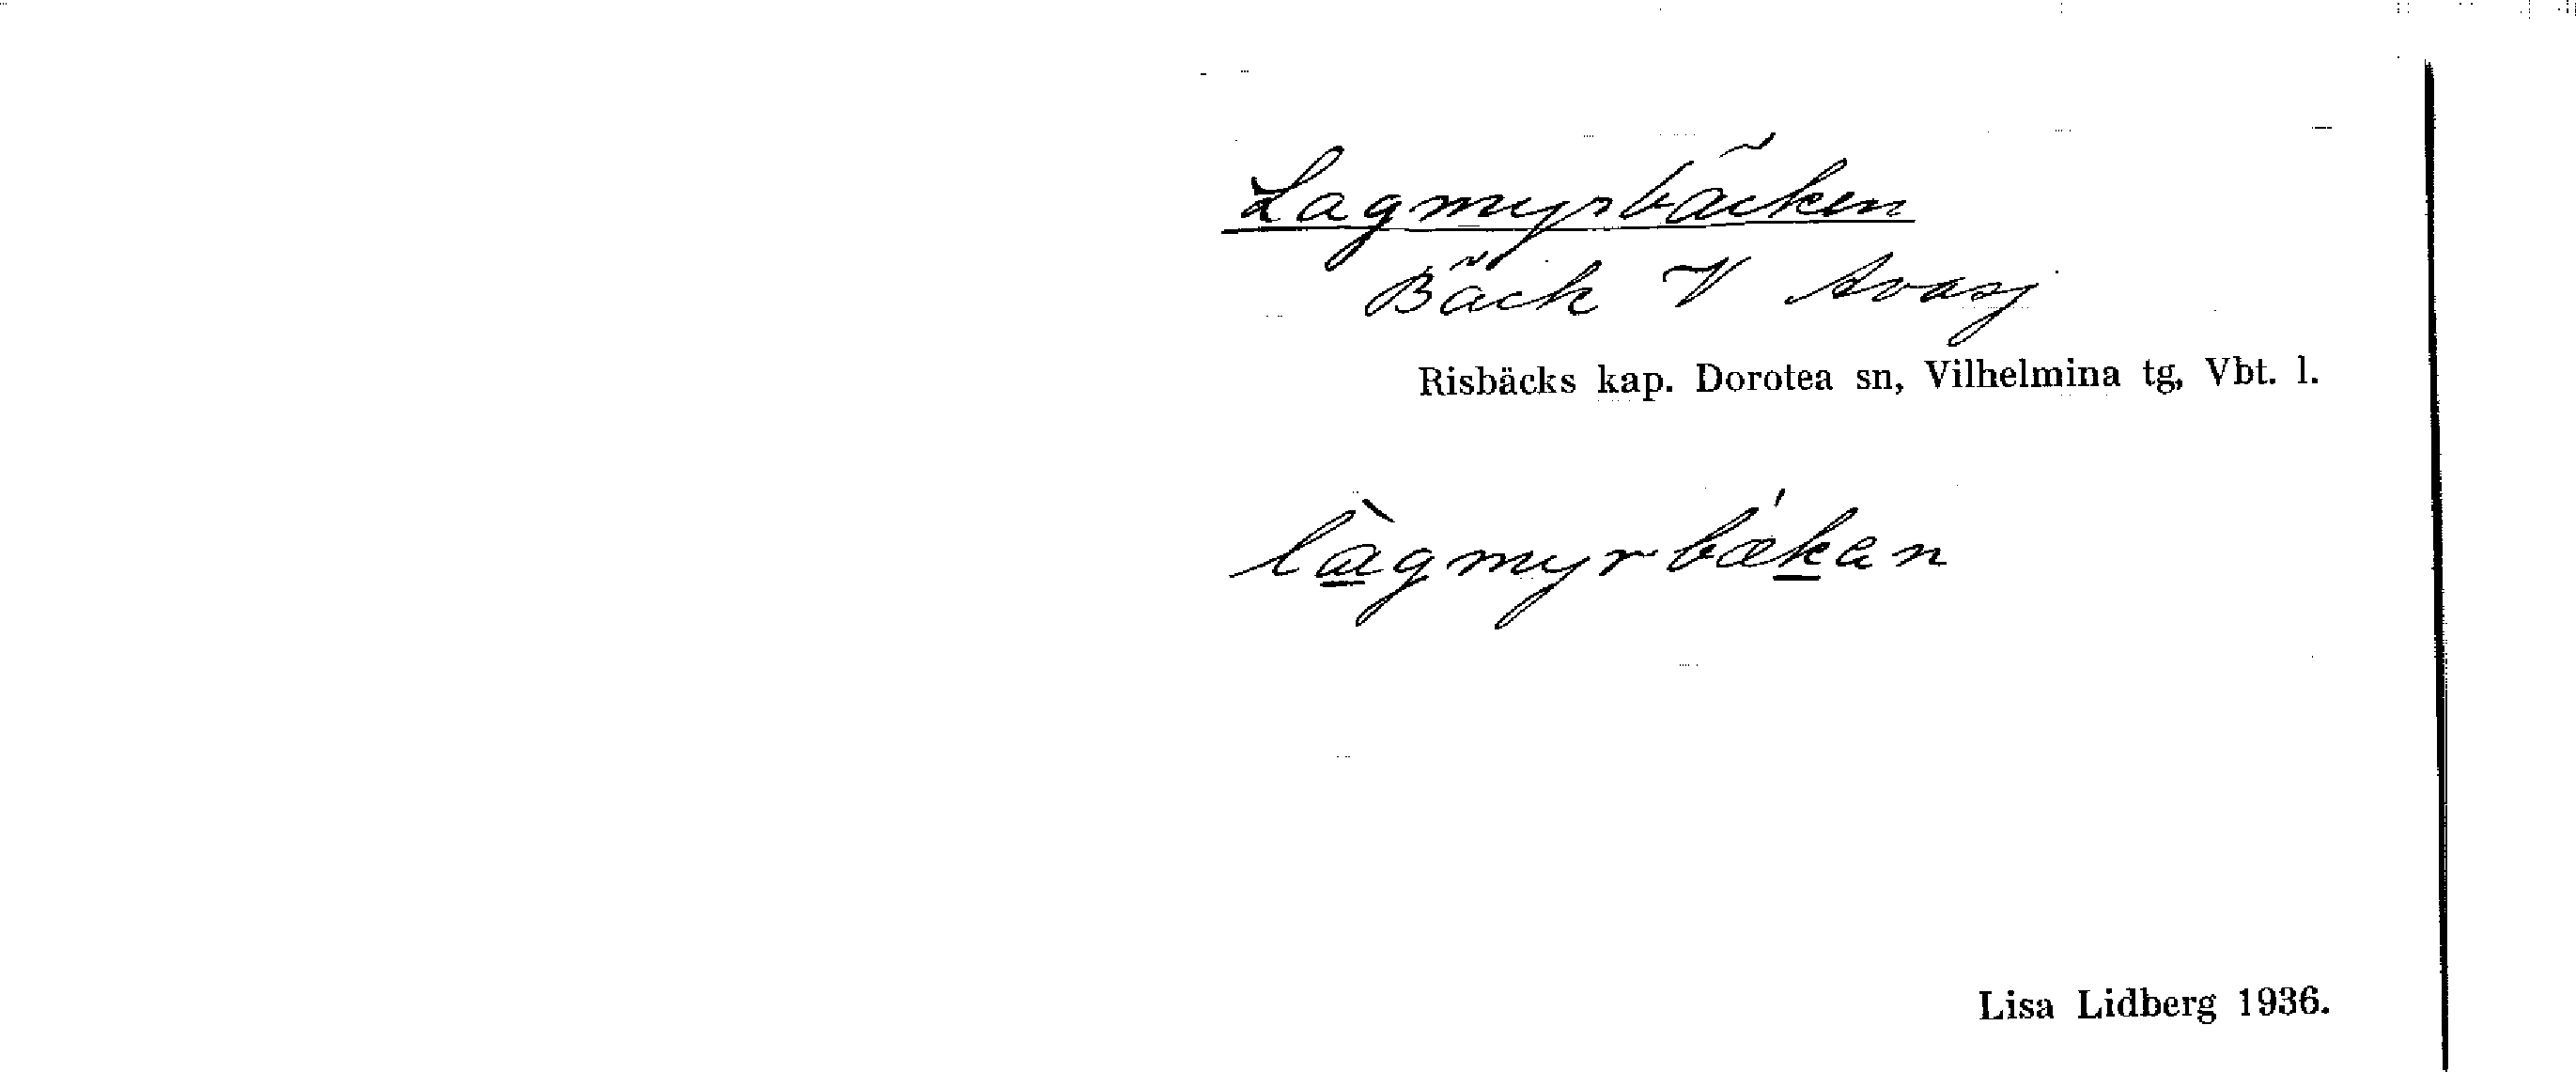 Lagmyrbäcken
Bäck V Avasj
Risbäcks kap. Dorotea sn, Vilhelmina tg, Vbt. l.
là̱gmyrbæ'ḵan
Lisa Lidberg 1936.